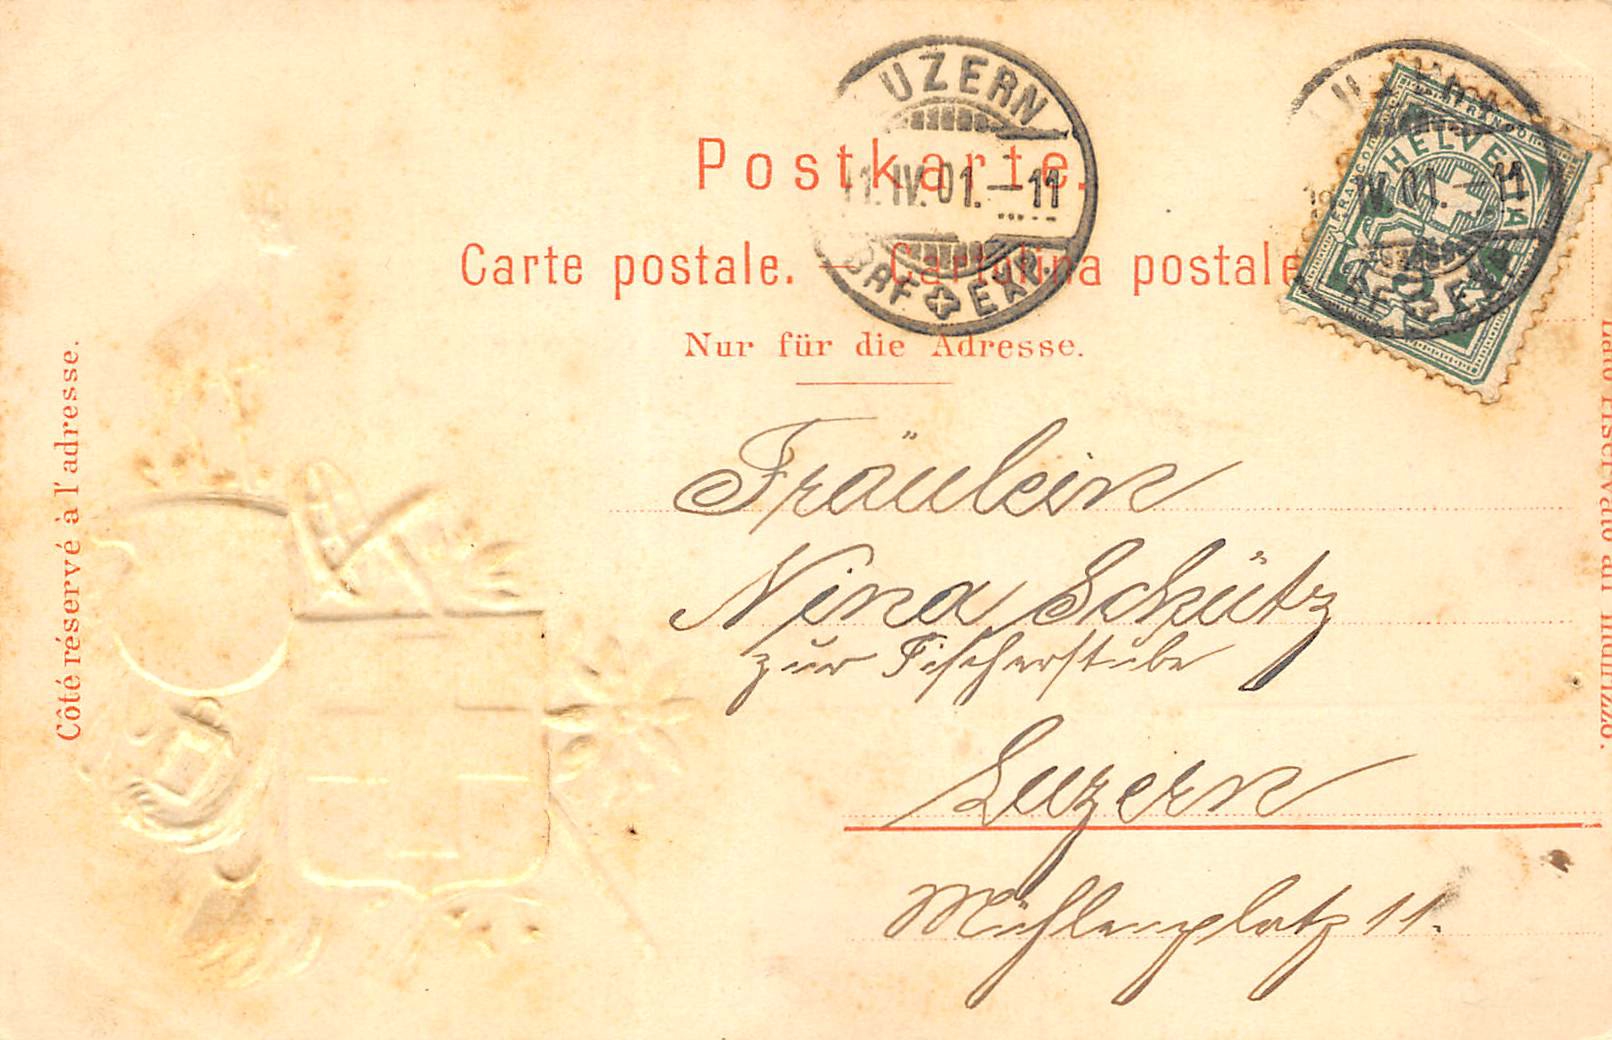 UZERN
11.IV.01.—11
BRF EXP.
Postkarte.
Carte postale. — Cartolina postale
Nur für die Adresse.
Côté réservé à l'adresse.
HELVETIA
IV.01.—11
5
Fräulein
Nina Schütz
zur Fischerstube
Luzern
Mühlenplatz 11.
Lato riservato all' indirizzo.